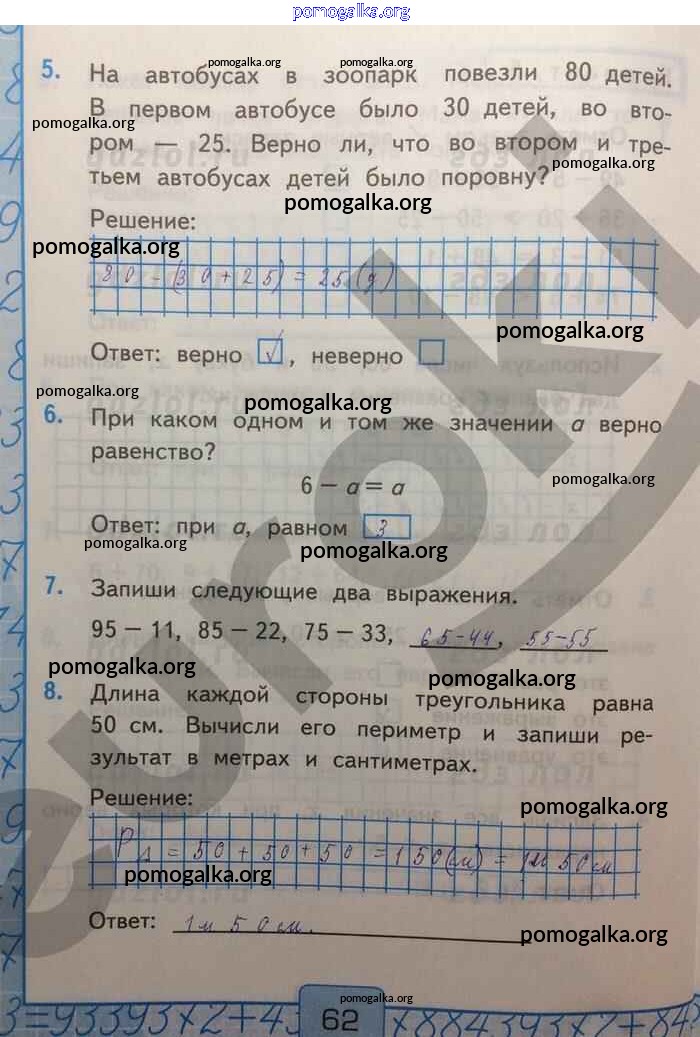 pomogalka.org
pomogalka.org pomogalka.org
5. На автобусах в зоопарк повезли 80 детей.
В первом автобусе было 30 детей, во вто-
pomogalka.org
ром — 25. Верно ли, что во втором и тре-
pomogalka.org
тьем автобусах детей было поровну?
pomogalka.org
Решение:
pomogalka.org
80 - (30+25) = 25 (д)
pomogalka.org
Ответ: верно √, неверно
pomogalka.org
pomogalka.org
6. При каком одном и том же значении а верно
равенство?
pomogalka.org
6 − а = а
Ответ: при а, равном 3
pomogalka.org
pomogalka.org
7. Запиши следующие два выражения.
95 − 11, 85 − 22, 75 − 33, 65-44, 55-55
pomogalka.org
pomogalka.org
8. Длина каждой стороны треугольника равна
50 см. Вычисли его периметр и запиши ре-
зультат в метрах и сантиметрах.
Решение:
pomogalka.org
P∆ = 50 + 50 + 50 = 150 (см) = 1м 50 см
pomogalka.org
Ответ: 1м 50 см.
pomogalka.org
pomogalka.org
3=93393×2+43 62 ×884393×2+84